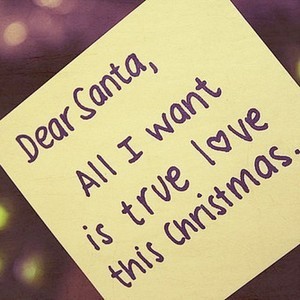 Dear Santa,
All I want
is true love
this Christmas.